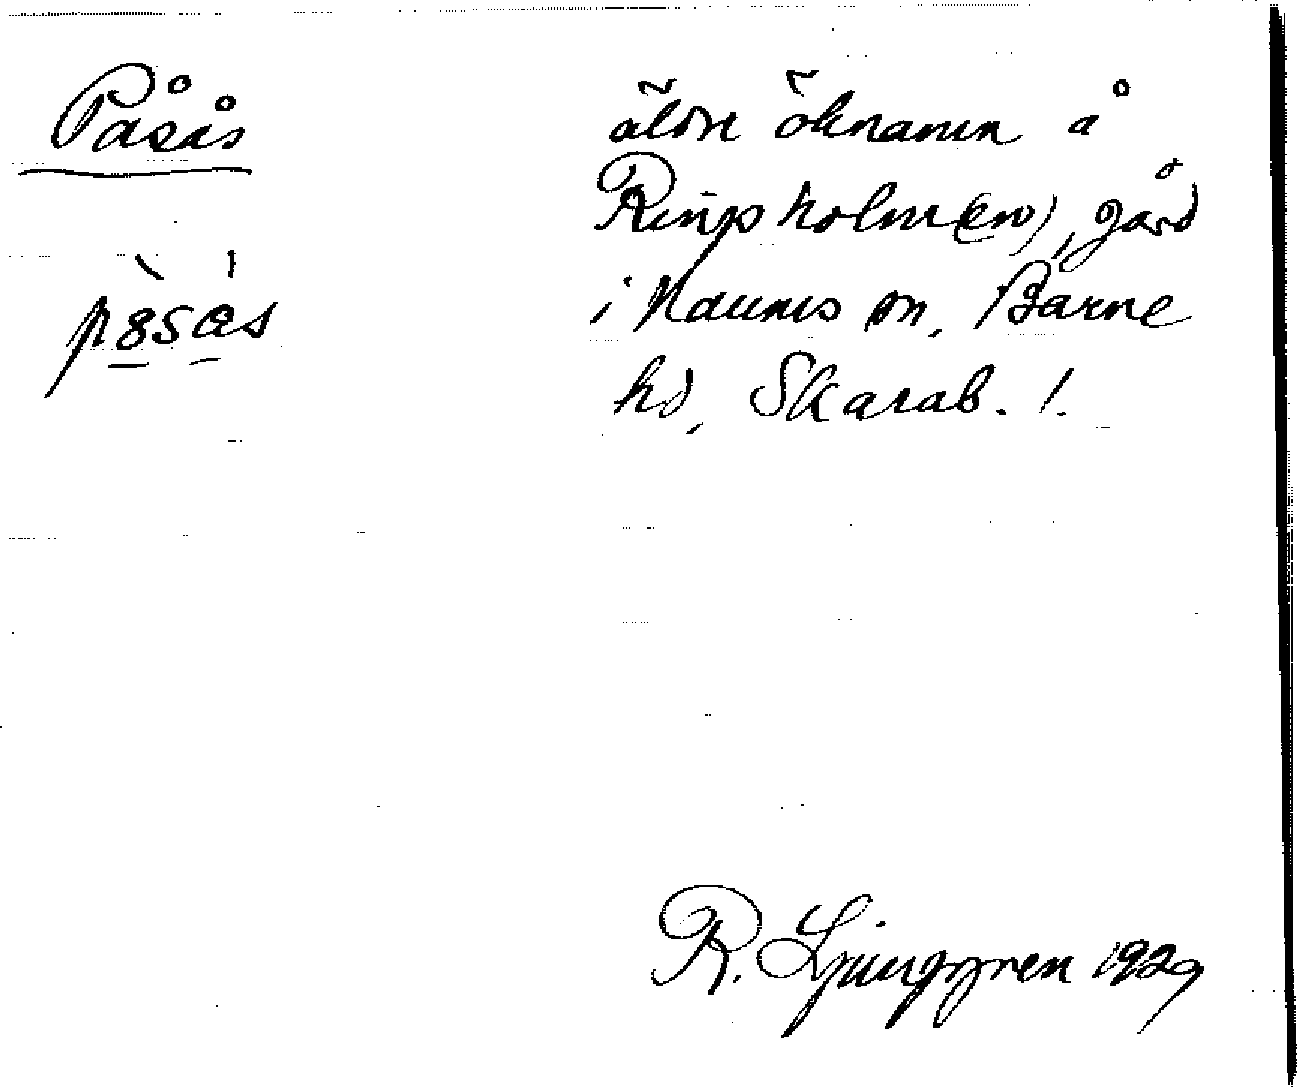 Påsås
äldre öknamn å
Ringsholm(en), gård
i Naums sn, Barne
hd, Skarab. !.
R. Ljunggren 1929